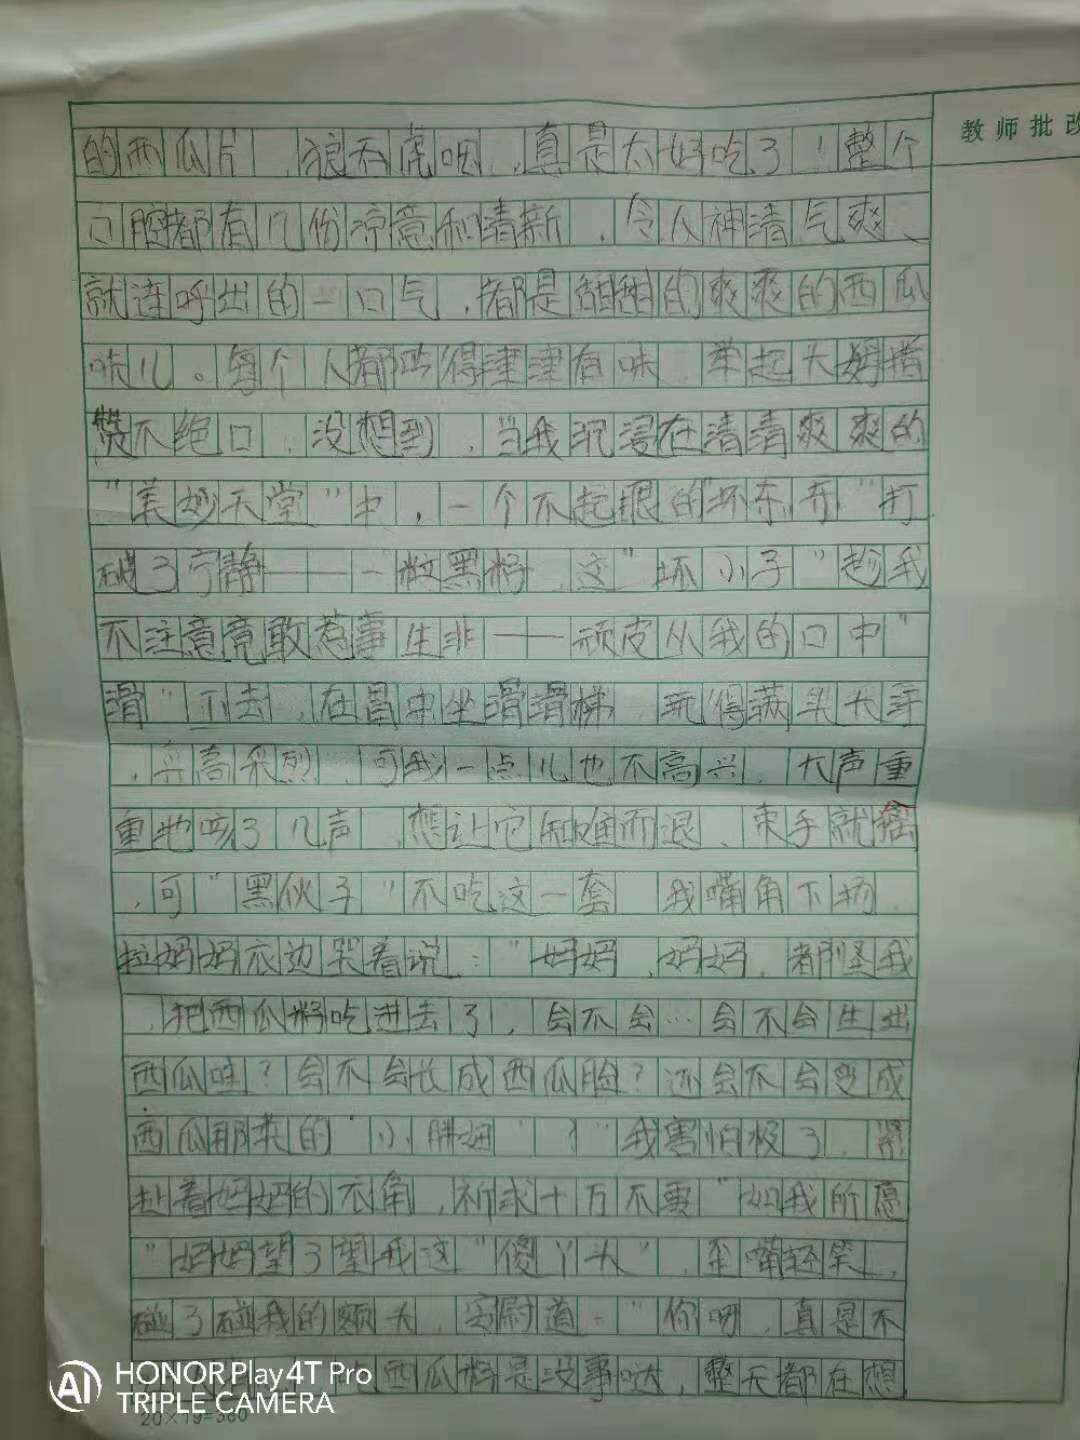 教师批改
的西瓜片，狼吞虎咽，真是太好吃了！整个
口腔都有几份凉意和清新，令人神清气爽、
就连呼出的一口气，都是甜甜的爽爽的西瓜
味儿。每个人都吃得津津有味，举起大姆指
赞不绝口，没想到，当我沉浸在清清爽爽的
"美妙天堂"中，一个不起眼的"坏东西"打
破了宁静——一粒黑籽，这"坏小子"趁我
不注意竟敢惹事生非——顽皮从我的口中"
滑"下去，在胃中坐滑滑梯，玩得满头大汗
，兴高采烈，可我一点儿也不高兴，大声重
重地咳了几声，想让它知难而退、束手就擒
，可"黑伙子"不吃这一套，我嘴角下扬，
拉妈妈衣边哭着说："妈妈，妈妈，都怪我
，把西瓜籽吃进去了，会不会…会不会生出
西瓜娃？会不会长成西瓜脸？还会不会变成
西瓜那样的"小胖妞"！"我害怕极了，紧
赴着妈妈的衣角，祈求十万不要"如我所愿
"妈妈望了望我这"傻丫头"，歪嘴轻笑，
碰了碰我的额头，安尉道："你呀，真是不
西瓜籽是没事哒，整天都在想
20×19=380
HONOR Play4T Pro
TRIPLE CAMERA